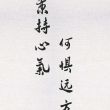 何惧远方
秉持心氣